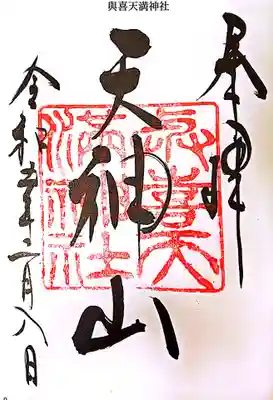 與喜天満神社
奉拝
天神山
與喜天
満神社
令和 年 月八日